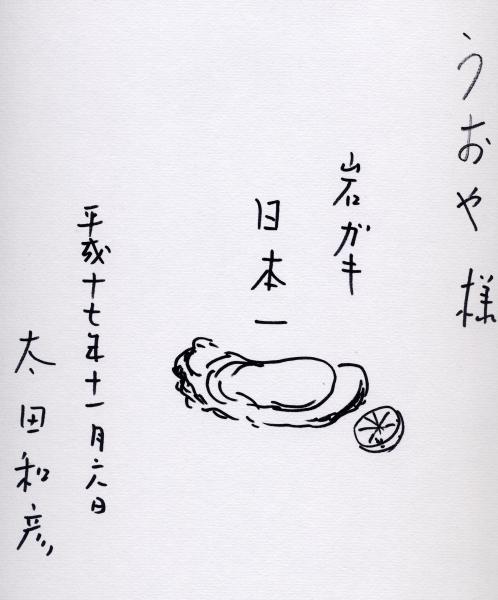 うおや 様
岩ガキ
日本一
平成十七年十一月六日
太田和彦